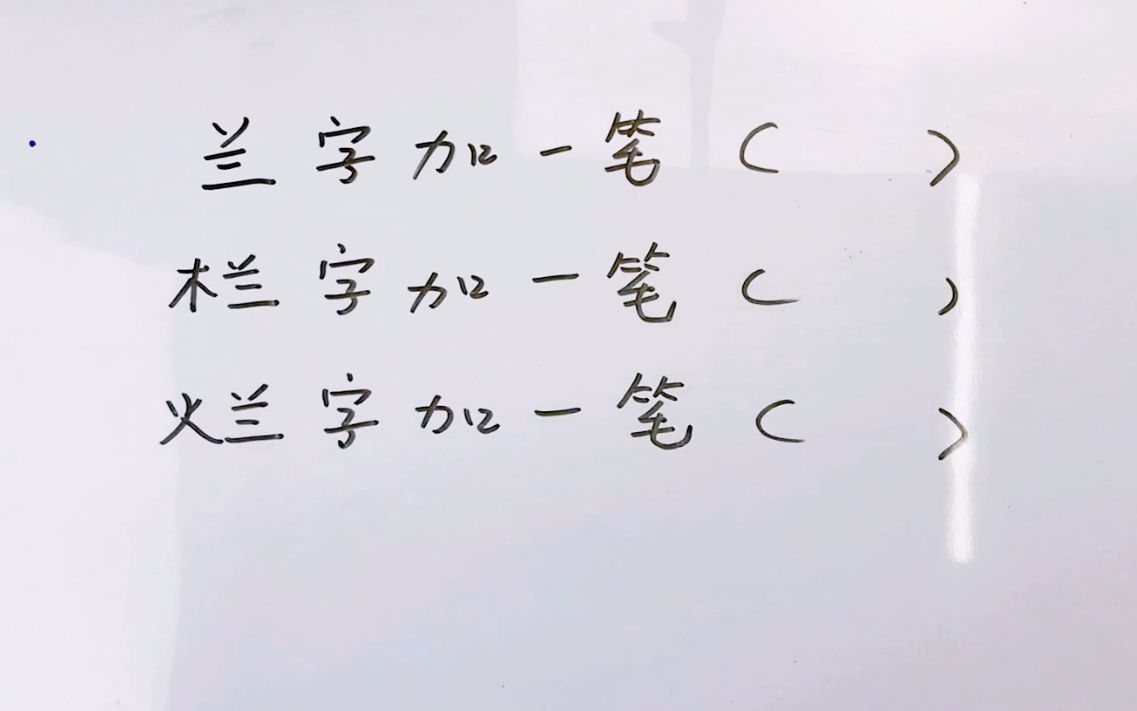 兰字加一笔(  )
栏字加一笔(  )
烂字加一笔(  )